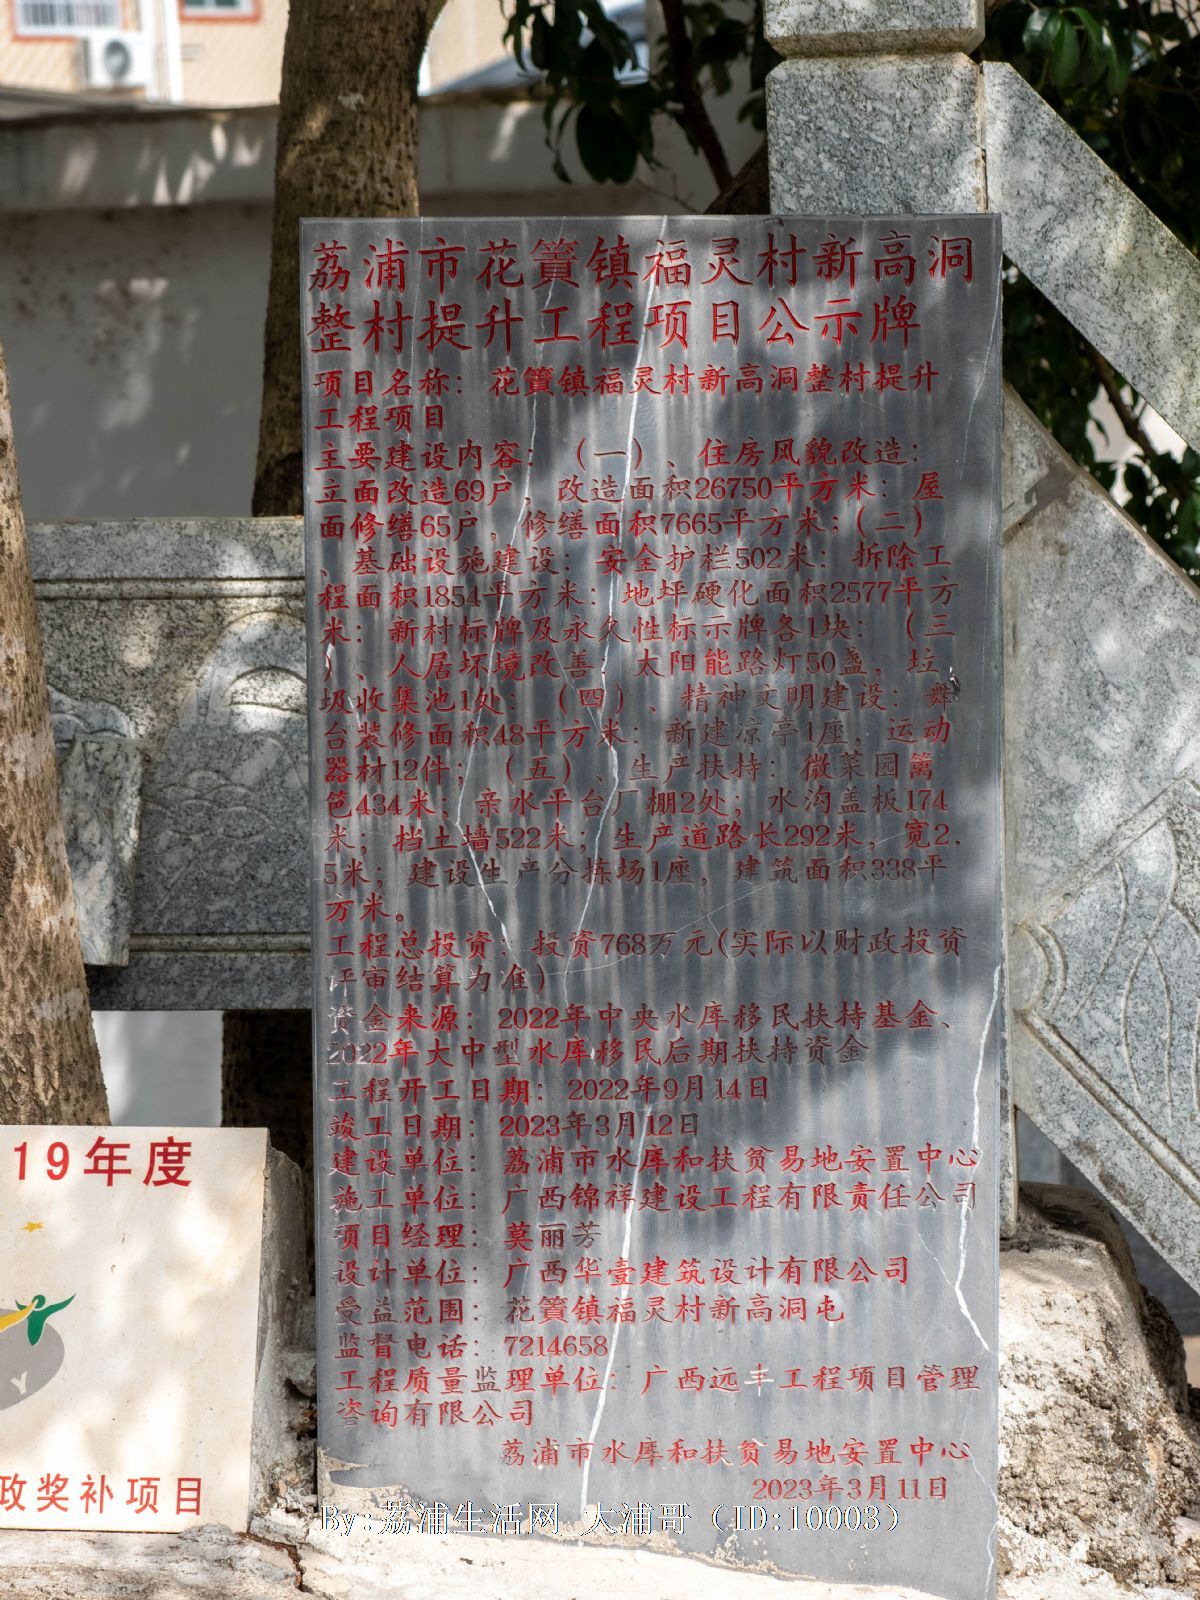 荔浦市花篢镇福灵村新高洞
整村提升工程项目公示牌
项目名称：花篢镇福灵村新高洞整村提升
工程项目
主要建设内容：（一）、住房风貌改造：
立面改造69户，改造面积26750平方米：屋
面修缮65户，修缮面积7665平方米；（二）
、基础设施建设：安全护栏502米：拆除工
程面积1854平方米：地坪硬化面积2577平方
米：新村标牌及永久性标示牌各1块：（三
）、人居环境改善：太阳能路灯50盏，垃
圾收集池1处：（四）、精神文明建设：舞
台装修面积48平方米：新建凉亭1座，运动
器材12件；（五）、生产扶持：微菜园篱
笆434米；亲水平台厂棚2处；水沟盖板174
米；挡土墙522米；生产道路长292米，宽2.
5米；建设生产分拣场1座，建筑面积338平
方米。
工程总投资：投资768万元(实际以财政投资
评审结算为准)
资金来源：2022年中央水库移民扶持基金、
2022年大中型水库移民后期扶持资金
工程开工日期：2022年9月14日
竣工日期：2023年3月12日
建设单位：荔浦市水库和扶贫易地安置中心
施工单位：广西锦祥建设工程有限责任公司
项目经理：莫丽芳
设计单位：广西华壹建筑设计有限公司
受益范围：花篢镇福灵村新高洞屯
监督电话：7214658
工程质量监理单位：广西远丰工程项目管理
咨询有限公司
荔浦市水库和扶贫易地安置中心
2023年3月11日
19年度
政奖补项目
By:荔浦生活网 大浦哥（ID:10003）